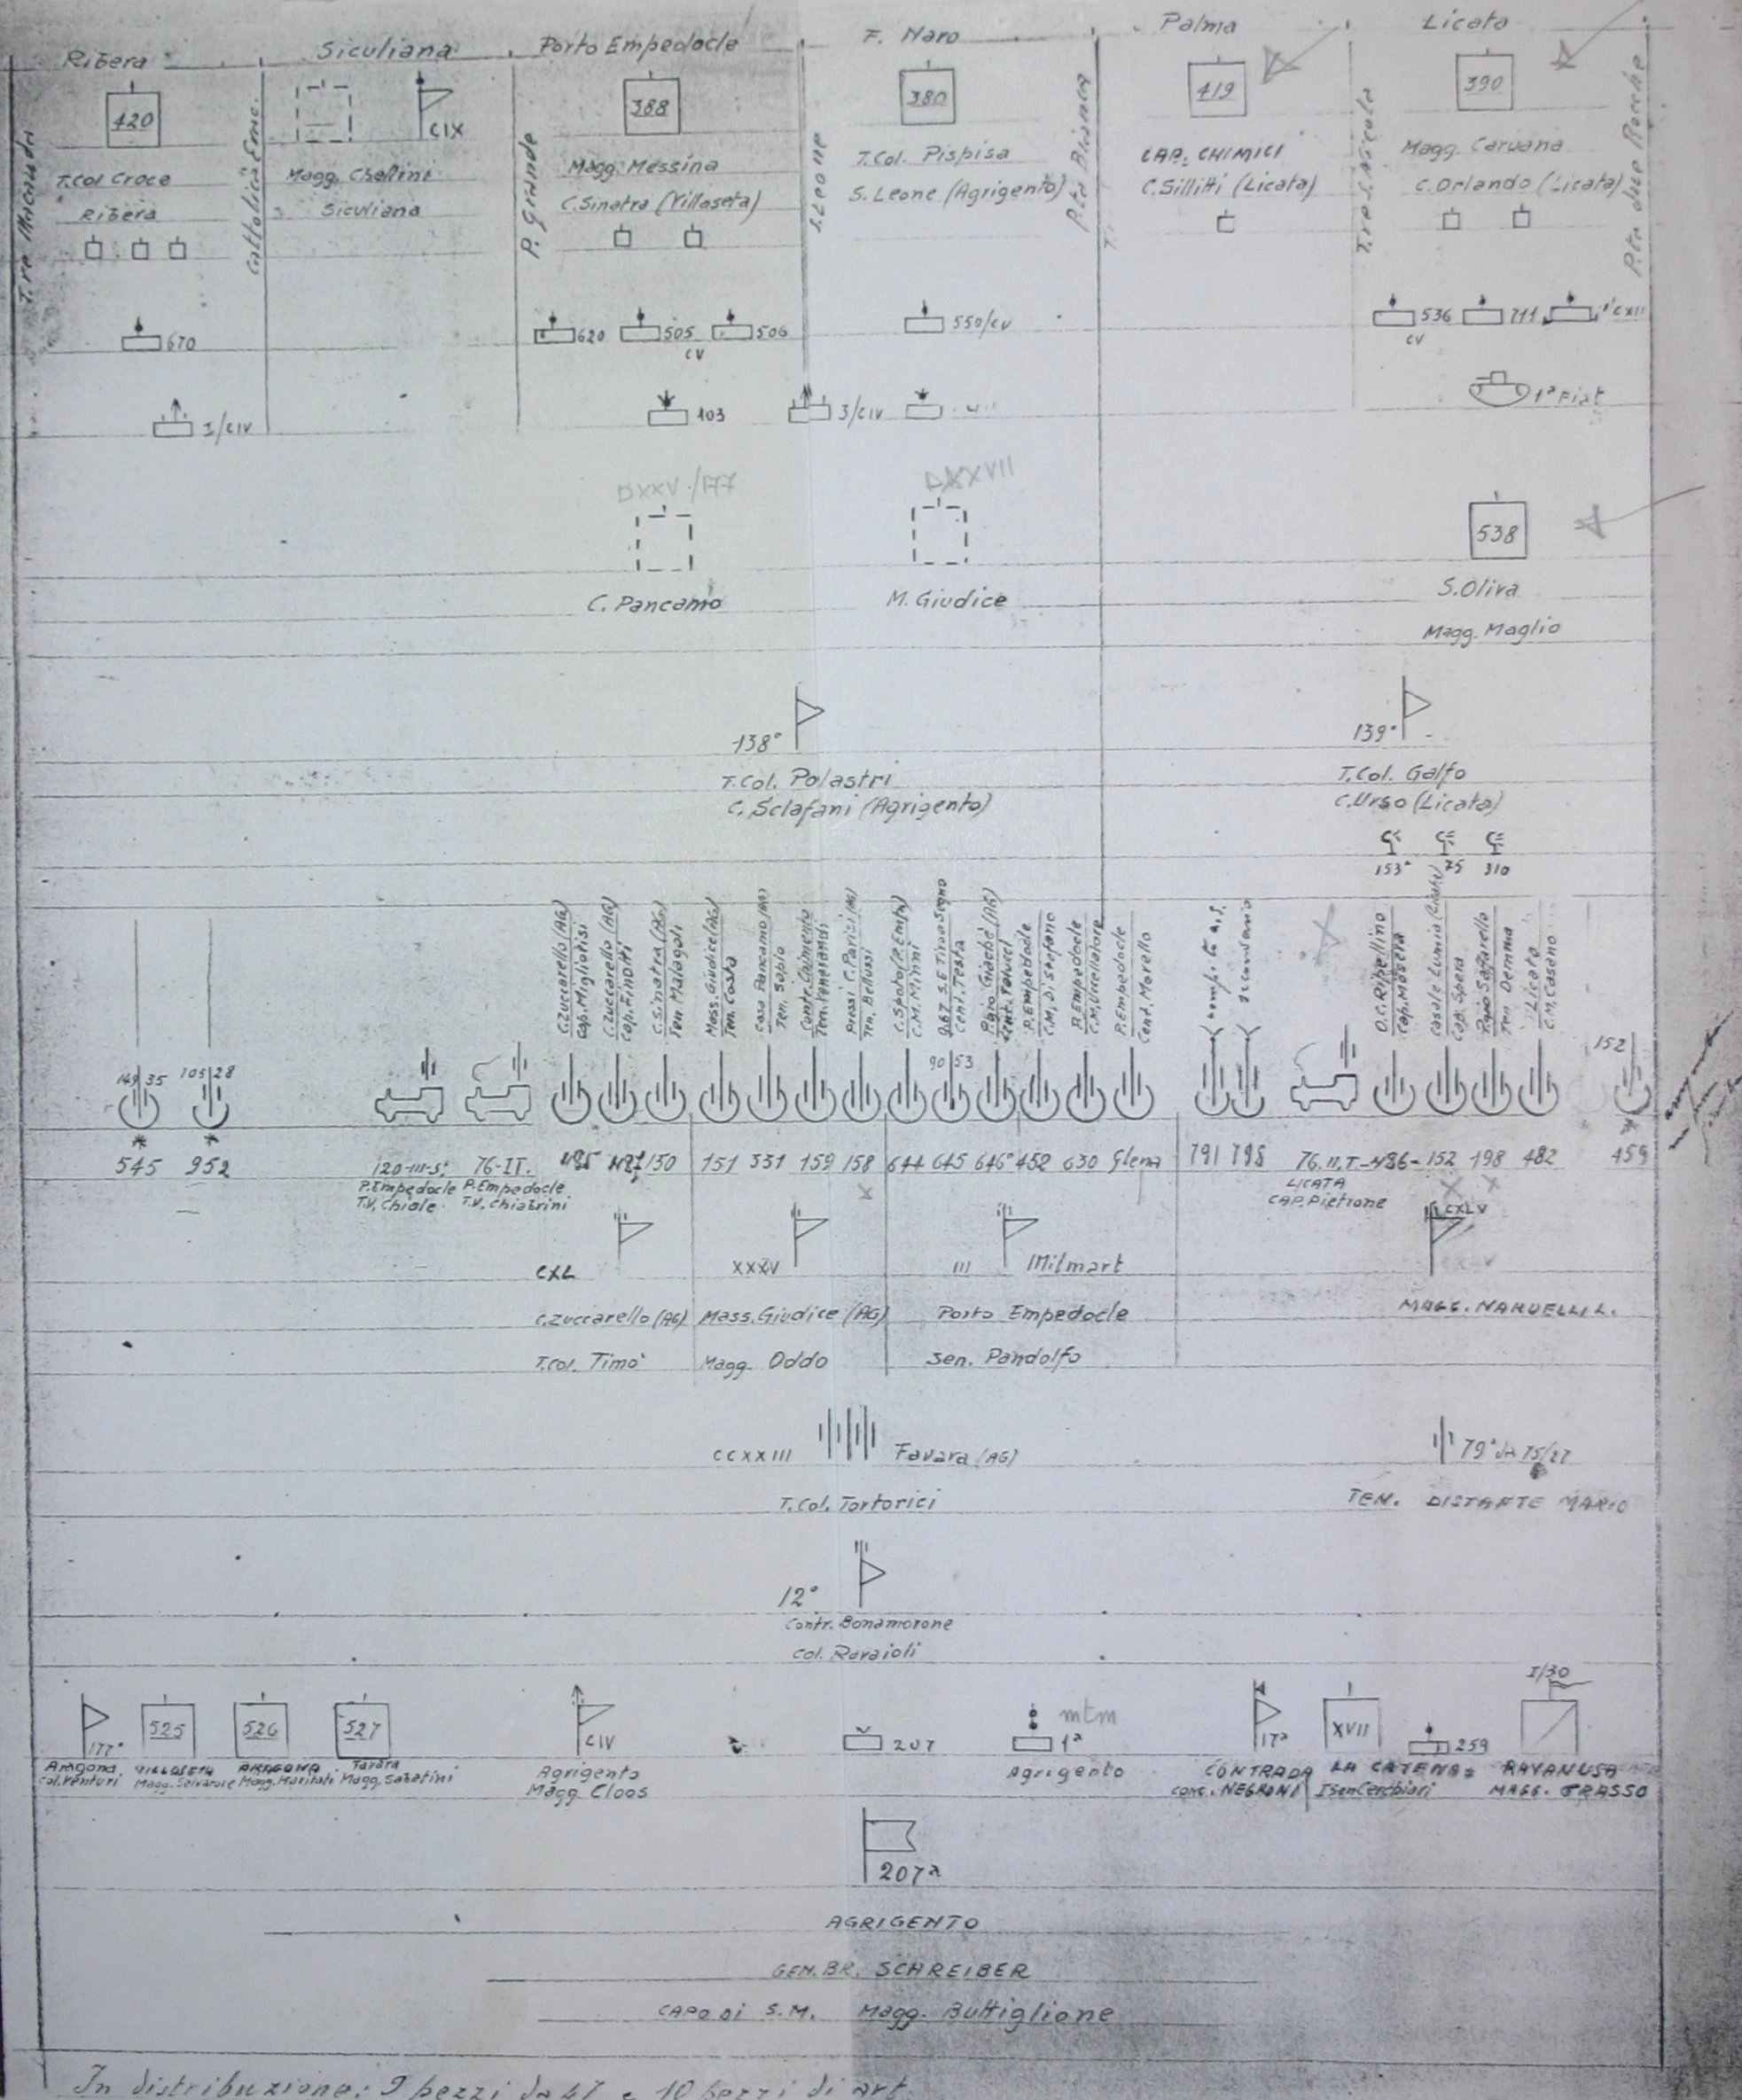 Ribera
Siculiana
Porto Empedocle
F. Naro
Palma
Licata
420
CIX
388
380
419
390
P. Grande
S. Leone
P.ta Bianca
P.ta due Rocche
T.Col Croce
Magg. Chellini
Magg. Messina
T.Col. Pispisa
CAP. CHIMICI
Magg. Caruana
Ribera
Siculiana
C.Sinatra (Villaseta)
S. Leone (Agrigento)
C.Sillitti (Licata)
C. Orlando (Licata)
670
620
505
CV
506
550/CV
536
CV
711
1°CXII
1/CIV
103
3/CIV
1ª Fiat
DXXV/177
DXXVII
538
C. Pancamo
M. Giudice
S.Oliva
Magg. Maglio
138°
139°
T.Col. Polastri
T.Col. Galfo
C. Sclafani (Agrigento)
C.Urso (Licata)
153ª
75
310
C.Zuccarello (AG)
Cap. Migliorisi
C.Zuccarello (AG)
Cap. Finotti
C.Sinatra (AG)
Ten. Malagoli
Mass. Giudice (AG)
Ten. Costa
Casa Pancamo (AG)
Ten. Sapio
Pressi C. Parisi (AG)
Ten. Bellussi
C.Spoto (P. Emp)
C.M. Minni
Q.67 S.E Tiro a Segno
Cent. Testa
P.Empedocle
C.M. Di Stefano
P.Empedocle
C.M. Uccellatore
P.Empedocle
Cent. Morello
O.C. Ripellino
Cap. Mosera
Casale Lumia (Licata)
Cap. Spera
Ten Demma
Licata
C.M. Caseno
149/35
105/28
90/53
152
545
952
120-III-S.
76-IT.
485
487
130
151
331
159
158
644
645
646°
452
630
Glena
791
795
76.II.T
486
152
198
482
459
P.Empedocle
T.V. Chiole
P.Empedocle
T.V. Chiabrini
LICATA
CAP. Pietrone
CXL
XXXV
III
Milmart
CXLV
C.Zuccarello (AG)
Mass. Giudice (AG)
Porto Empedocle
MAGG. NARUELLI L.
T.Col. Timo'
Magg. Oddo
Sen. Pandolfo
CCXXIII
Favara (AG)
79ª da 75/27
T. Col. Tortorici
TEN. DISTANTE MARIO
12°
Contr. Bonamorone
Col. Ravaioli
177°
525
526
527
CIV
207
1ª
mtm
17ª
XVII
259
I/30
Aragona
Col. Venturi
VILLASETA
Magg. Salvatore
ARAGONA
Magg. Maritati
Favara
Magg. Sabatini
Agrigento
Magg Cloos
Agrigento
CONTRADA LA CATENA
Cons. NEGRONI
I Sen Cerchiari
RAVANUSA
MAGG. GRASSO
207ª
AGRIGENTO
GEN. BR. SCHREIBER
CAPO DI S.M. Magg. Buttiglione
In distribuzione: 9 pezzi da 47 e 10 pezzi di art